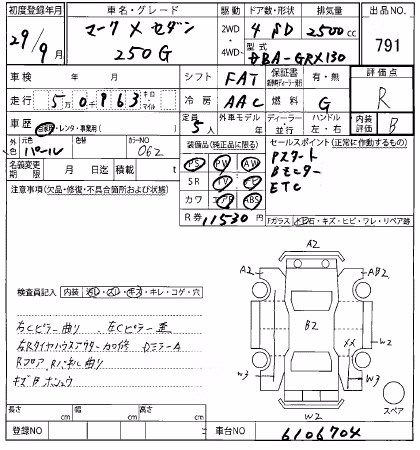 初度登録年月 車名・グレード 駆動 ドア数・形状 排気量 出品NO
29/9月 マークXセダン 250G 2WD 4WD 4 SD 2500cc 791
型式 DBA-GRX130
車検 年 月 シフト FAT 保証書 有・無 評価点
走行 5万0千963 キロ マイル 冷房 AAC 燃料 G R
車歴 自家用・レンタ・事業用( ) 定員 5人 外車モデル 年 ディーラー 並行 ハンドル 左・右 内装評価 B
外色 元色 パール 色替 カラーNO 062
装備品(純正品に限る) セールスポイント(正常に作動するもの)
PS PW AW Pスタート
名義変更期限 月 日迄 積載 t SR TV ナビ Bモニター
注意事項(欠品・修復・不具合箇所および状態) カワ エアB ABS ETC
R券 11530円 Fガラス 飛石・キズ・ヒビ・ワレ・リペア跡
A2
A2 AB2
検査員記入 内装 汚レ・スレ・キズ・キレ・コゲ・穴
B2
右Cピラー曲り 左Cピラー歪
W2
左Rタイヤハウスアウター加修 DミラーA
XX
Rフロア Rパネル曲り
W3 W3
キズBホシュウ
W2 スペア
長さ cm 幅 cm 高さ cm
登録NO 車台NO 6106704